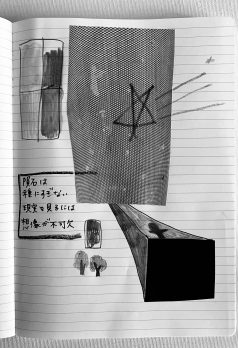 隕石は
種にすぎない
現実を見るには
想像が不可欠